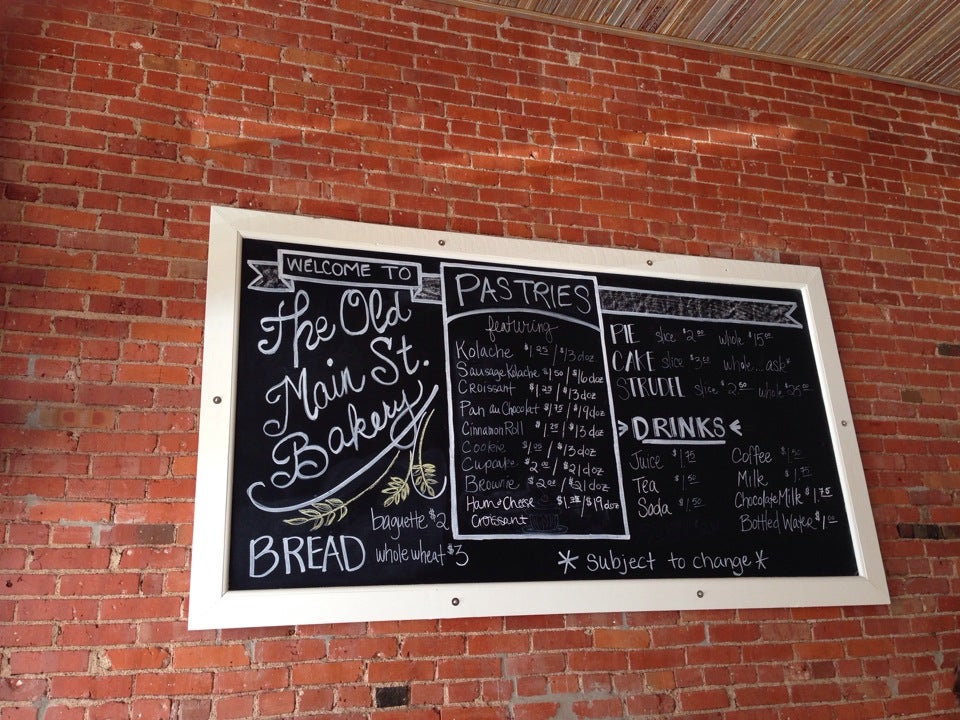 WELCOME TO
The Old
Main St.
Bakery
baguette $2
BREAD whole wheat $3
PASTRIES
featuring
Kolache $1.25 / $13 doz
Sausage Kolache $1.50 / $16 doz
Croissant $1.25 / $13 doz
Pan au Chocolat $1.75 / $19 doz
Cinnamon Roll $1.25 / $13 doz
Cookie $1.25 / $13 doz
Cupcake $2.00 / $21 doz
Brownie $2.00 / $21 doz
Ham & Cheese / $19 doz
Croissant
PIE slice $2.00 whole $15.00
CAKE slice whole...ask*
STRUDEL slice $2.50 whole $25.00
DRINKS
Juice $1.75
Tea $1.50
Soda $1.50
Coffee $1.50
Milk $1.75
Chocolate Milk $1.75
Bottled Water $1.00
* Subject to change *